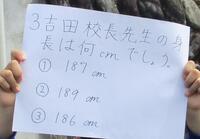 3 吉田校長先生の身
長は何cmでしょう。
① 187 cm
② 189 cm
③ 186 cm